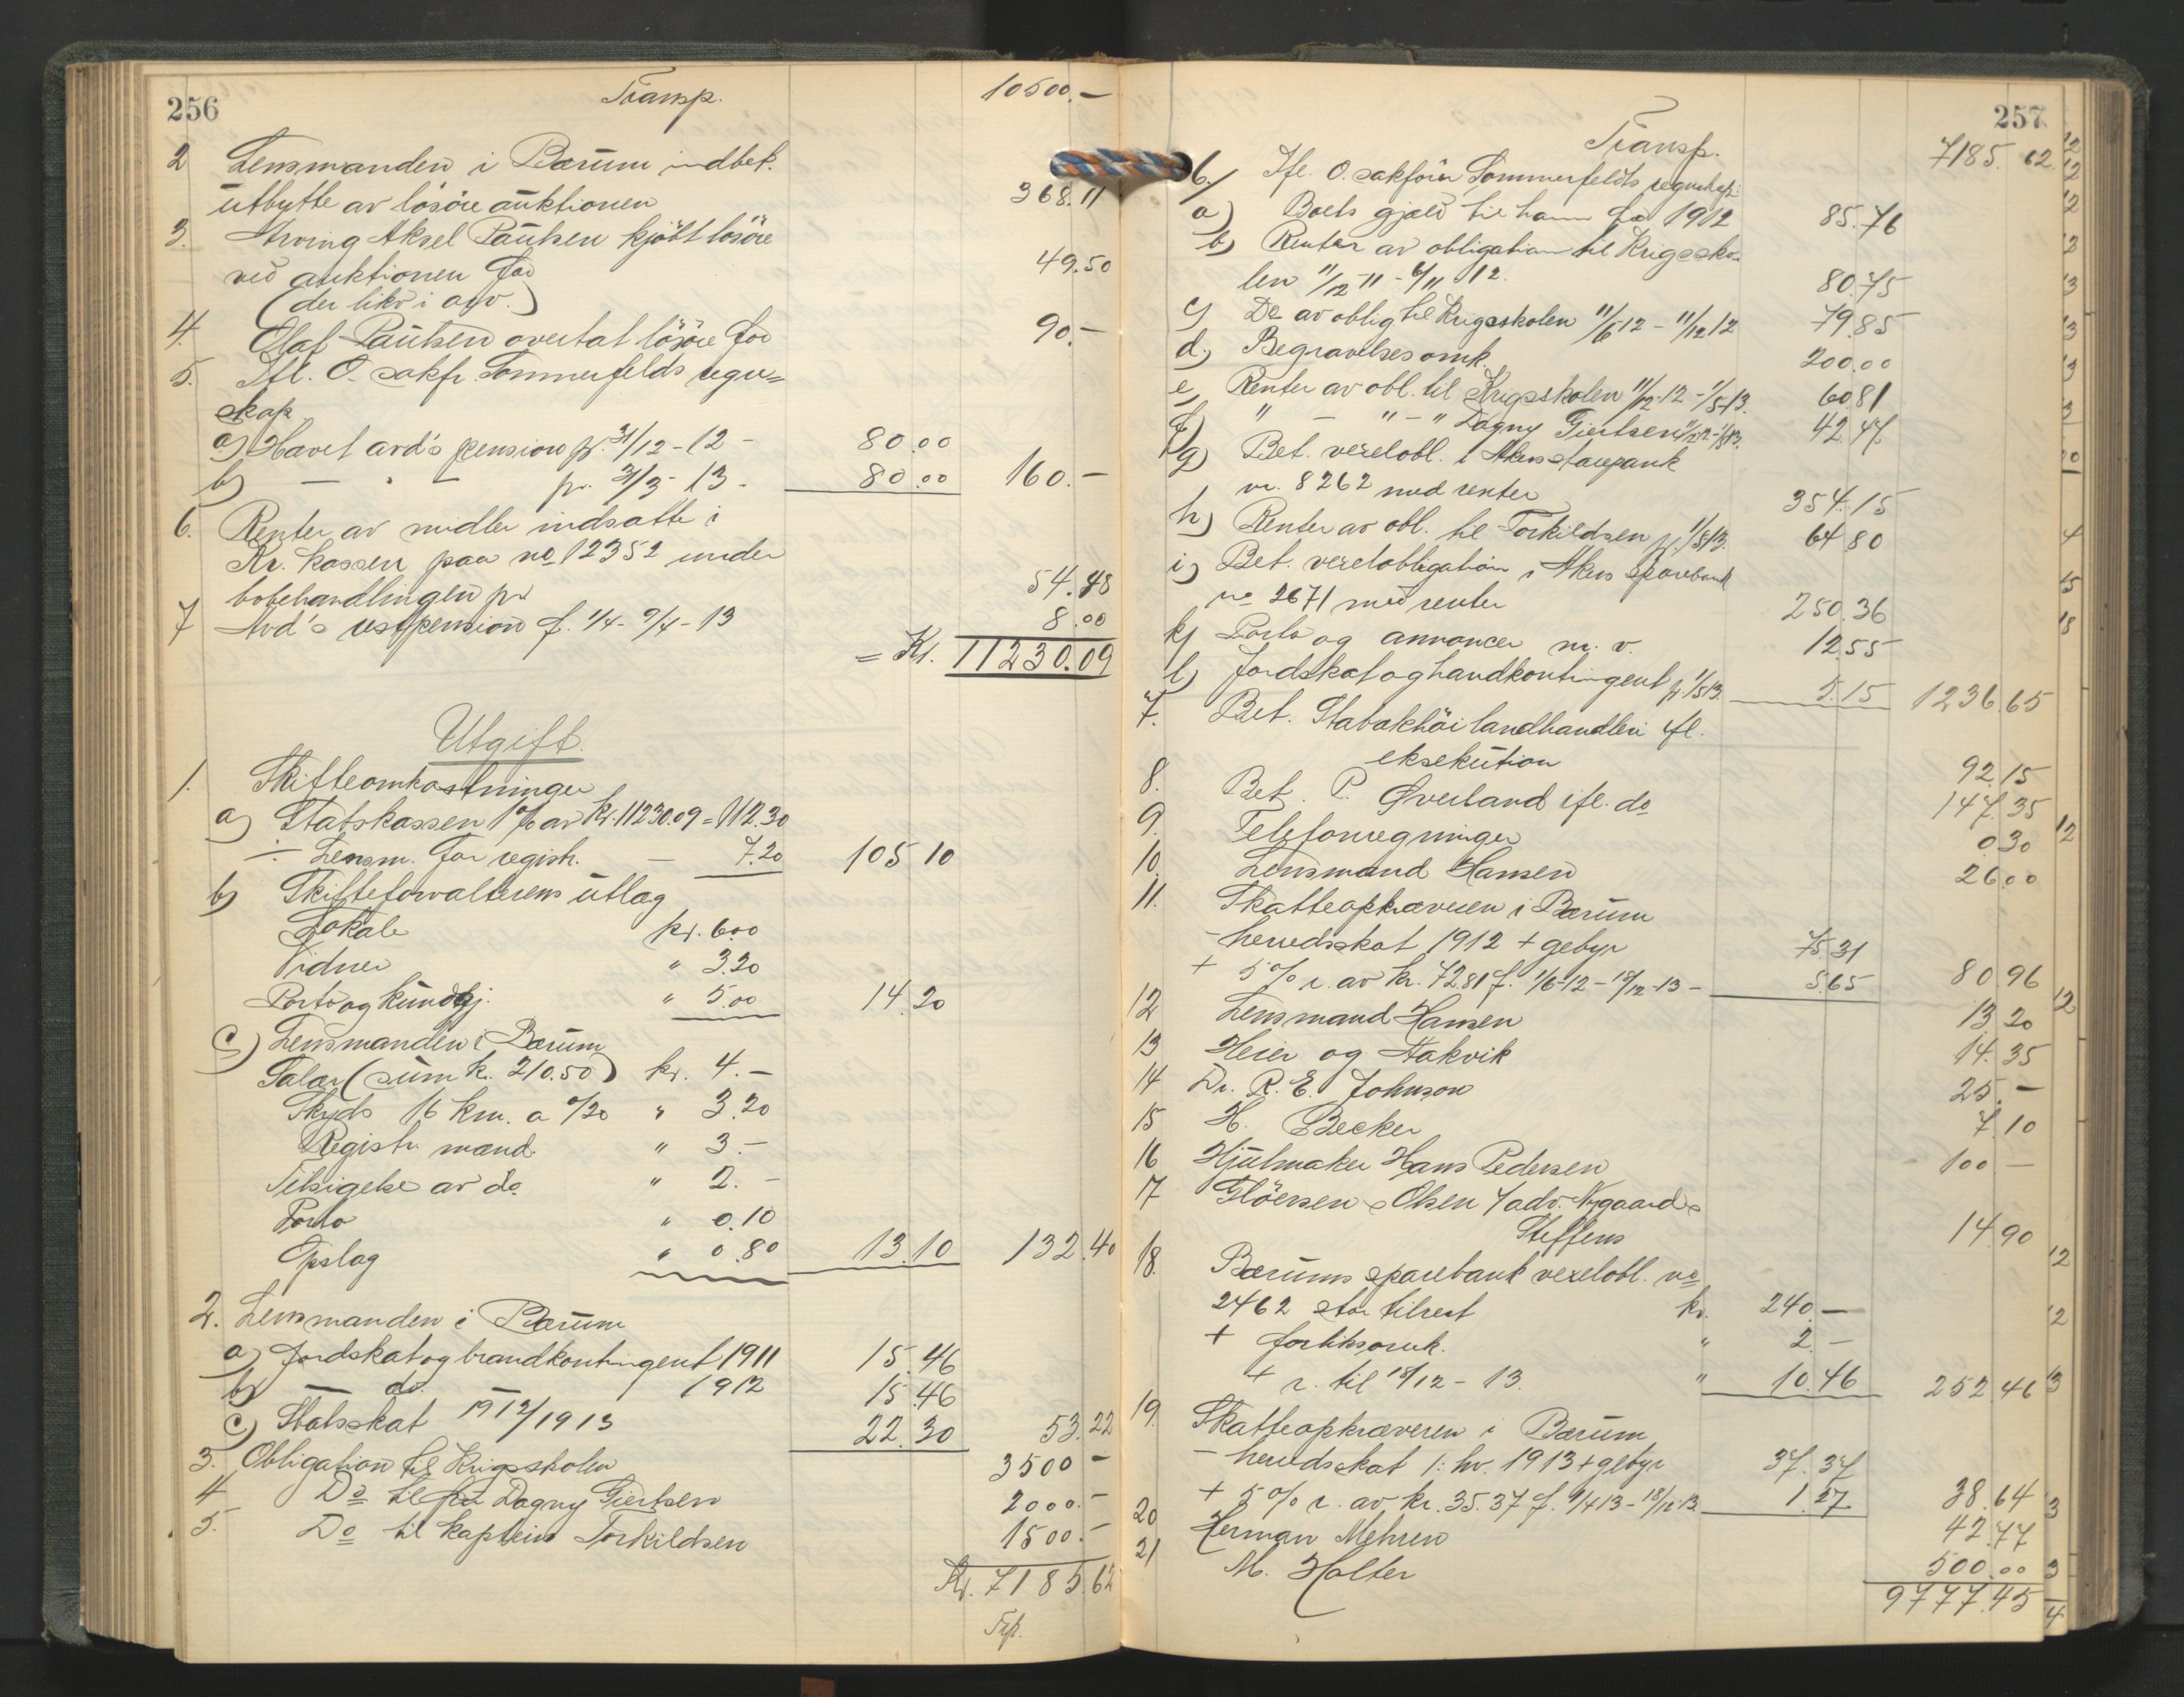 256
Transp. 10500.-
2 Lensmanden i Bærum indbet.
utbytte av lösöre auktionen 368.11
3. Arving Aksel Paulsen kjöbt lösöre
ved auktionen for 49.50
(der likv i arv.)
4. Olaf Paulsen overtat lösöre for 90.-
5. Ifl. O. sakf. Sommerfelds regn=
skap
a) Havel avd's pension pr. 31/12-12 - 80.00
b) — " — pr. 31/3-13 - 80.00 160.-
6. Renter av midler indsatte i
Kr. kassen paa no 12352 under
bobehandlingen pr 54.48
7 Avd's restpension f. 1/4-9/4-13 8.00
= Kr. 11230.09
Utgift.
1. Skifteomkostninger
a) Statskassen 1% av kr. 11230.09 = 112.30
÷ Lensm. for registr. — 7.20 105 10
b) Skifteforvalterens utlæg
Lokale kr. 6.00
Vidner " 3.20
Porto og kundgj. " 5.00 14.20
c) Lensmanden i Bærum
Salær (sum kr. 210.50) kr. 4.-
Skyds 16 km. a 0/20 " 3.20
Registr. mænd. " 3-
Tilsigelse av do " 2.-
Porto " 0.10
Opslag " 0.80 13.10 132.40
2. Lensmanden i Bærum
a) Jordskat og brandkontingent 1911 15.46
b) — do. — 1912 15.46
c) Statsskat 1912/1913 22.30 53.22
3. Obligation til Krigsskolen 3500 -
4 Do til fru Dagny Giertsen 2000.-
5. Do til kaptein Torkildsen 1500.-
Kr. 7185.62
Trp.
257
Transp. 7185.62
6. Ifl. O. sakförer Sommerfeldts regnskap:
a) Boets gjæld til ham fra 1912 85.76
b) Renter av obligation til Krigssko-
len 11/12 11 - 6/11 12. 80.75
c) Do av oblig. til Krigsskolen 11/6 12 - 11/12 12 79.85
d) Begravelsesomk. 200.00
e) Renter av obl. til Krigsskolen 11/12-12 - 1/5-13. 60.81
f) " — " — " Dagny Giertsen 42.47
g) Bet. vexelobl. i Akers sparebank
nr. 8262 med renter 354.15
h) Renter av obl. til Torkildsen pr. 1/5 13. 64 80
i) Bet. vexelobligation i Akers sparebank
no 2671 med renter 250.36
k) Porto og annoncer m. v. 12.55
l) Jordskat og brandkontingent pr. 1/5 13. 5.15 1236.65
7. Bet. Stabækhöi landhandleri ifl.
eksekution 92.15
8. Bet. P. Øverland ifl. do 147.35
9. Telefonregninger 0.30
10. Lensmand Hansen 26.00
11. Skatteopkræveren i Bærum
- herredsskat 1912 + gebyr 75.31
+ 5% r. av kr. 72.81 f. 1/6-12 - 18/12-13 - 5.65 80.96
12 Lensmand Hansen 13.20
13 Heier og Stakvik 14.35
14 Dr. R. E. Johnson 25.-
15 H. Becker 7.10
16 Hjulmaker Hans Pedersen 100 -
17 Glöersen & Olsen v/ adv. Nygaard &
Steffens 14.90
18. Bærums sparebank vexelobl. no
2462 stor tilrest kr. 240.-
+ forliksomk. " 2.-
+ r. til 18/12-13. " 10.46 252.46
19. Skatteopkræveren i Bærum
- herredsskat 1. hv. 1913 + gebyr 37.37
+ 5% r. av kr. 35.37 f. 9/4 13 - 18/12 13 1.27 38.64
20 Herman Mehren 42.77
21 M. Holter 500.00
9777.45